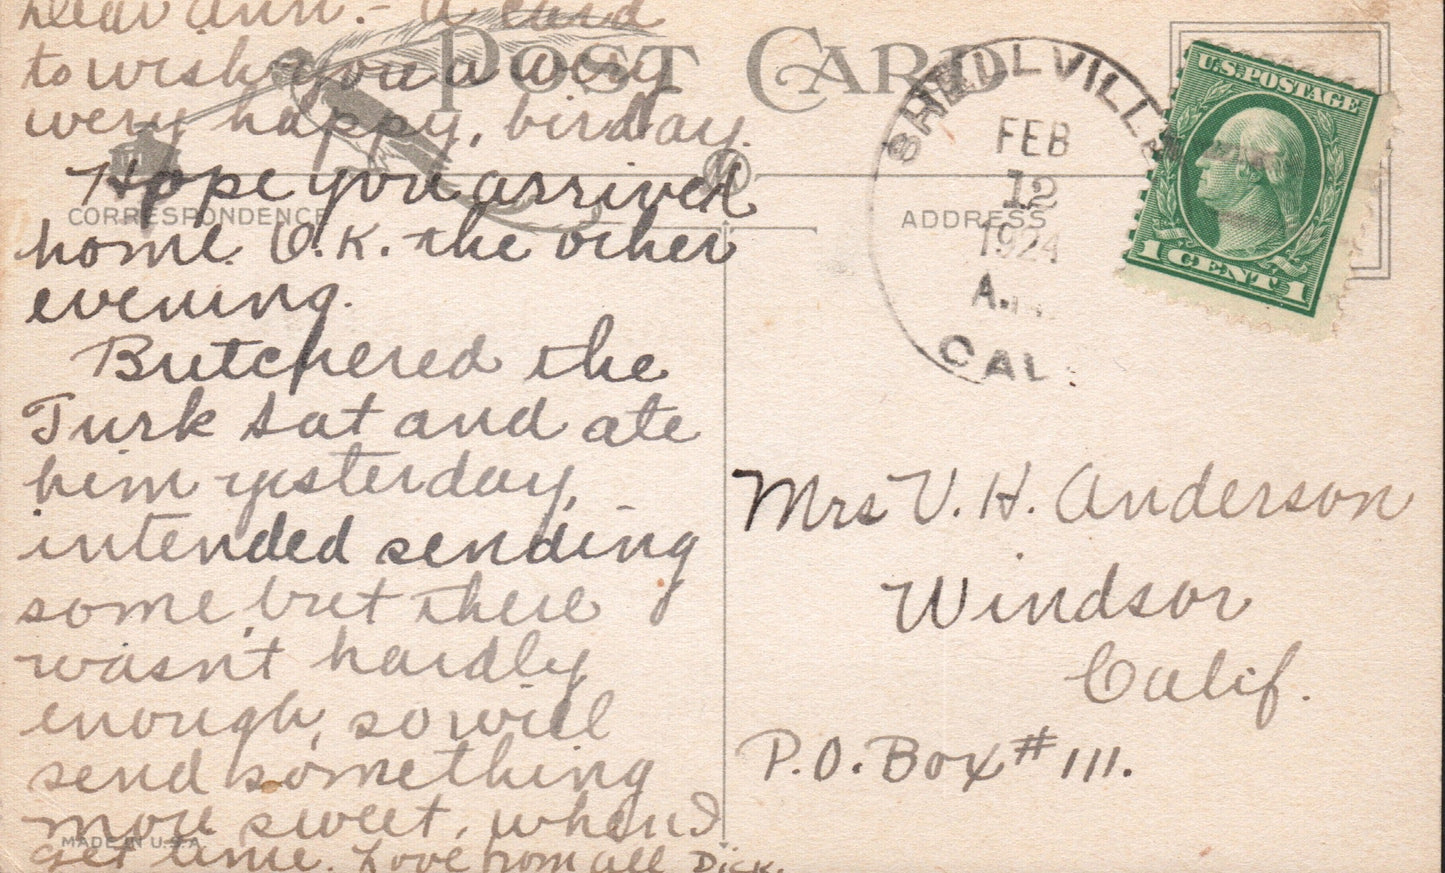 Dear Ann. - A card
to wish you a very
very happy, birdday.
Hope you arrived
home. O.K. the other
evening.
Butchered the
Turk Sat and ate
him yesterday,
intended sending
some, but there
wasn't hardly
enough, so will
send something
more sweet, when I
get time. Love from all Dick.
POST CARD
CORRESPONDENCE
ADDRESS
MADE IN U.S.A.
FEB
12
1924
A.M.
CAL.
U.S. POSTAGE
1 CENT 1
Mrs V. H. Anderson
Windsor
Calif.
P.O. Box # 111.